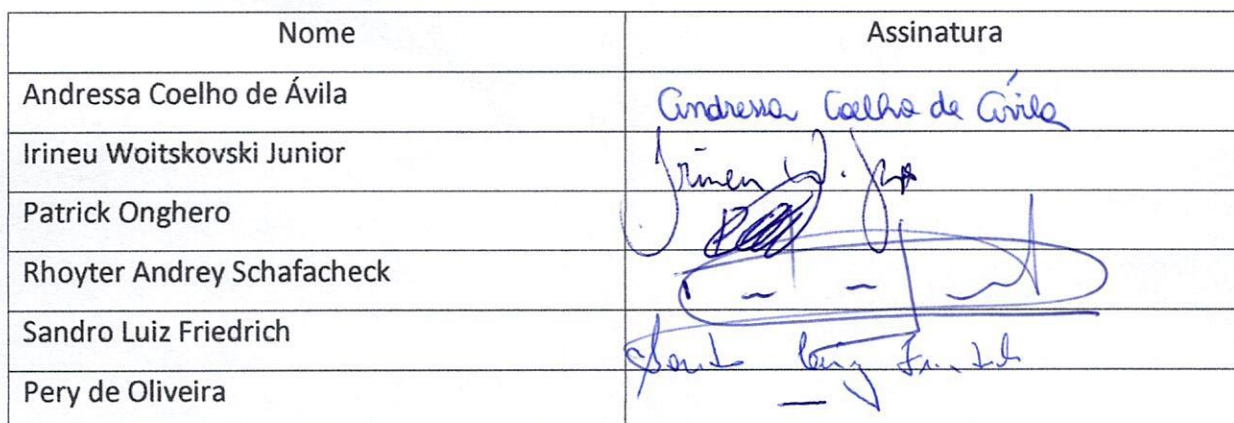 Nome Assinatura
Andressa Coelho de Ávila Andressa Coelho de Ávila
Irineu Woitskovski Junior Irineu W. Jr
Patrick Onghero
Rhoyter Andrey Schafacheck
Sandro Luiz Friedrich Luiz
Pery de Oliveira